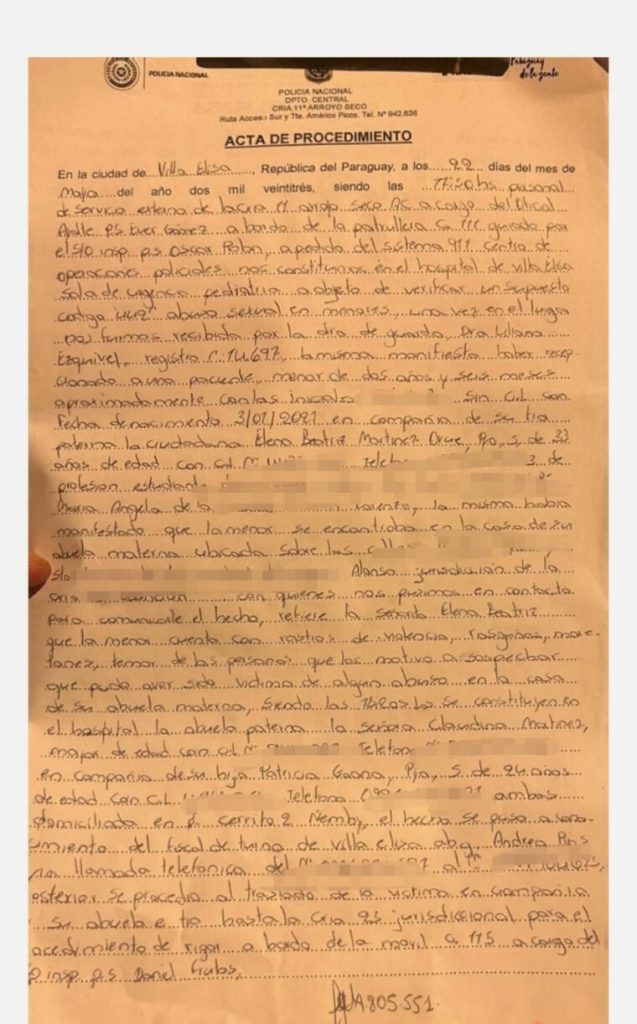 POLICIA NACIONAL
Paraguay
de la gente
POLICIA NACIONAL
DPTO. CENTRAL
CRIA 11ª ARROYO SECO
Ruta Acceso Sur y Tte. Américo Picco. Tel. Nº 942.836
ACTA DE PROCEDIMIENTO
En la ciudad de Villa Elisa, República del Paraguay, a los 22 días del mes de
Mayo del año dos mil veintitrés, siendo las 17:50 hs personal
de servicio externo de la cria 11 arroyo seco AC a cargo del Oficial
P.S Ever Gomez a bordo de la patrullera C 111 guiado por
el S/O insp. p.s Oscar, a pedido del sistema 911 centro de
operaciones policiales nos constituimos en el hospital de villa Elisa
sala de urgencia pediatria a objeto de verificar un supuesto
codigo abuso sexual en menores, una vez en el lugar
nos fuimos recibida por la dra de guardia, Dra Liliana
Ezquivel, registro Nº 14.697, la misma manifiesta haber recep
cionado a una paciente, menor de dos años y seis meses
aproximadamente con las iniciales Sin C.I. con
Fecha de nacimiento 3/01/2021 en compañia de su tia
paterna la ciudadana Elena Beatriz Martinez, Pya, S, de 23
años de edad con C.I. Nº Telef 3 de
profesion estudiante
Maria Angela de la la misma habia
manifestado que la menor se encontraba en la casa de su
abuela materna ubicada sobre las calles
Alonso jurisdiccion de la
Cria con quienes nos pusimos en contacto
para comunicarle el hecho, refiere la señorita Elena Beatriz
que la menor cuenta con rastros de violencia, rasguños, more-
tones, temor de las personas que las motivo a sospechar
que pudo aver sido victima de algun abuso en la casa
de su abuela materna, siendo las se constituyen en
el hospital la abuela paterna la señora Claudina Martinez,
mayor de edad con C.I. Nº Telefono Nº
en compañia de su hija Patricia Gaona, Pya, S. de 24 años
de edad con C.I. Telefono ambas
domiciliada en cerrito 2 Ñemby, el hecho se puso a cono-
cimiento del fiscal de turno de villa elisa abg. Andrea
via llamada telefonica del Nº al
posterior se procedio al traslado de la victima en compañia
su abuela e tia hasta la Cria 23 jurisdiccional para el
procedimiento de rigor a bordo de la movil C 115 a cargo del
insp. p.s Daniel
4805.551